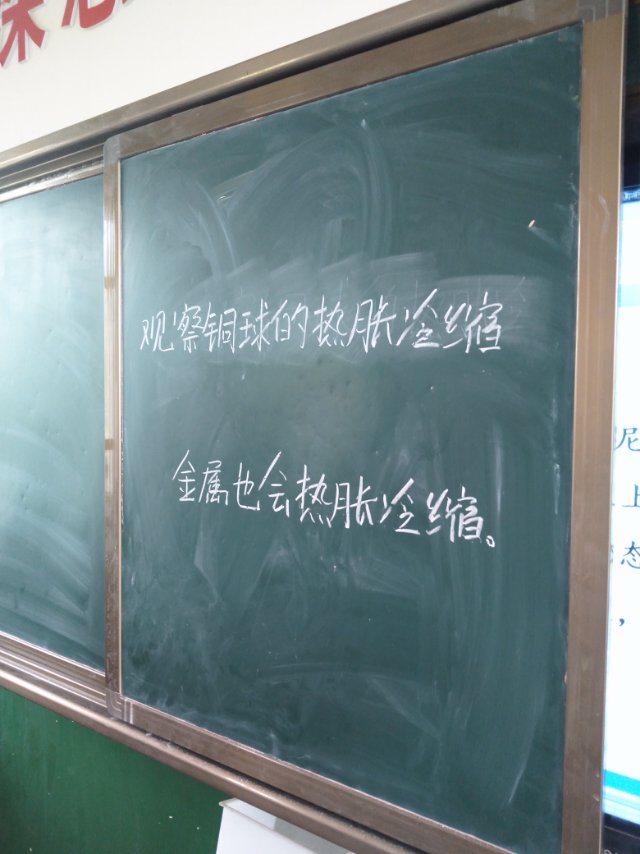 观察铜球的热胀冷缩
金属也会热胀冷缩。
尼
上
态
，